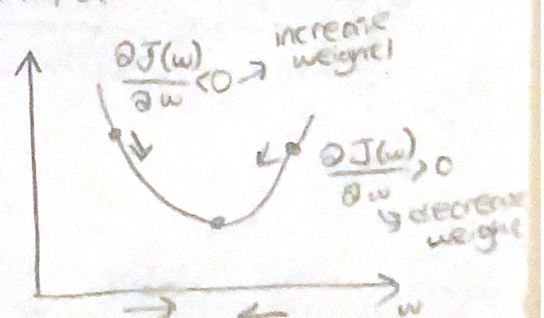 ∂J(w)/∂w <0 → increase
weight!
∂J(w)/∂w >0
↳ decrease
weight
w